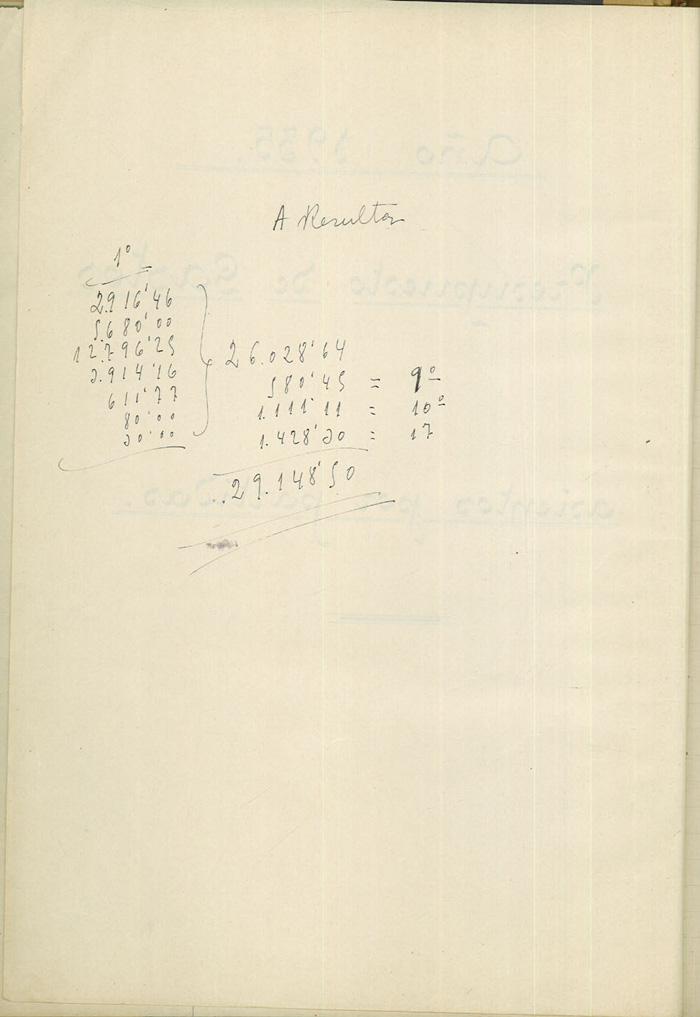 A Resultas
1º
2.916'46
5.680'00
12.796'25
3.914'16
611'77
80'00
30'00
26.028'64
580'45 = 9º
1.111'11 = 10º
1.428'30 = 17
29.148'50